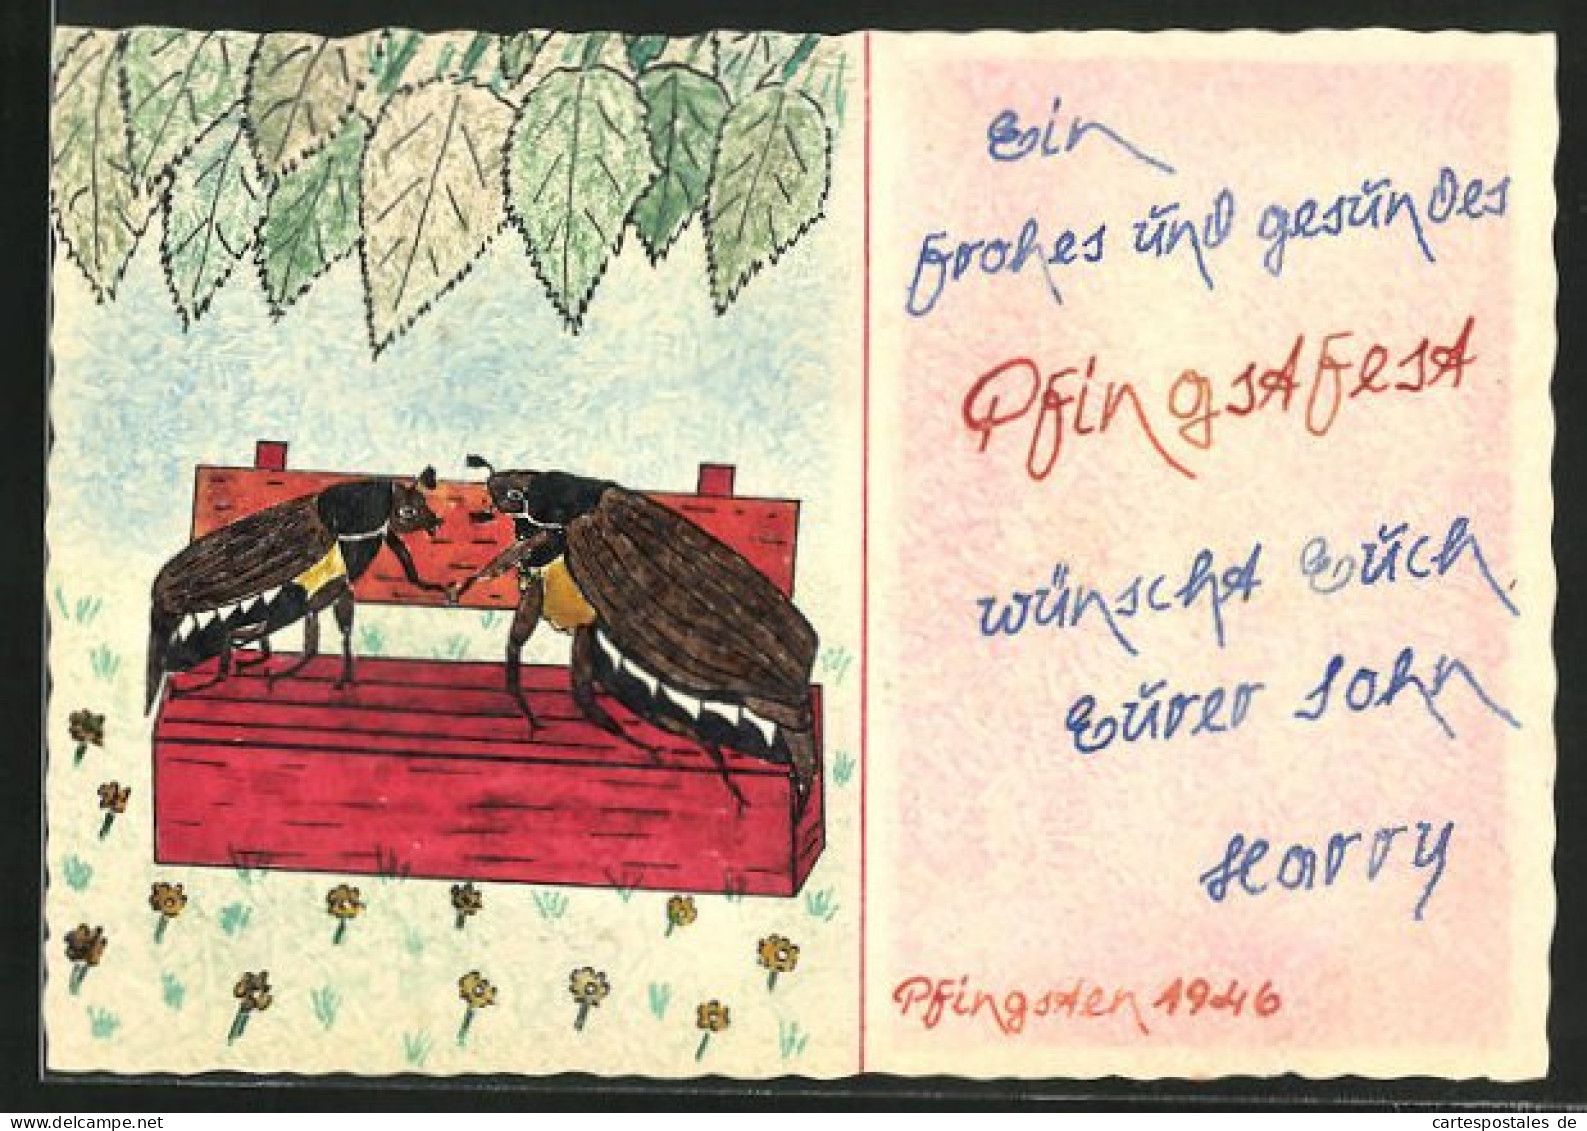 Ein
frohes und gesundes
Pfingstfest
wünscht Euch
Eurer Sohn
Harry
Pfingsten 1946
www.cartespostales.de